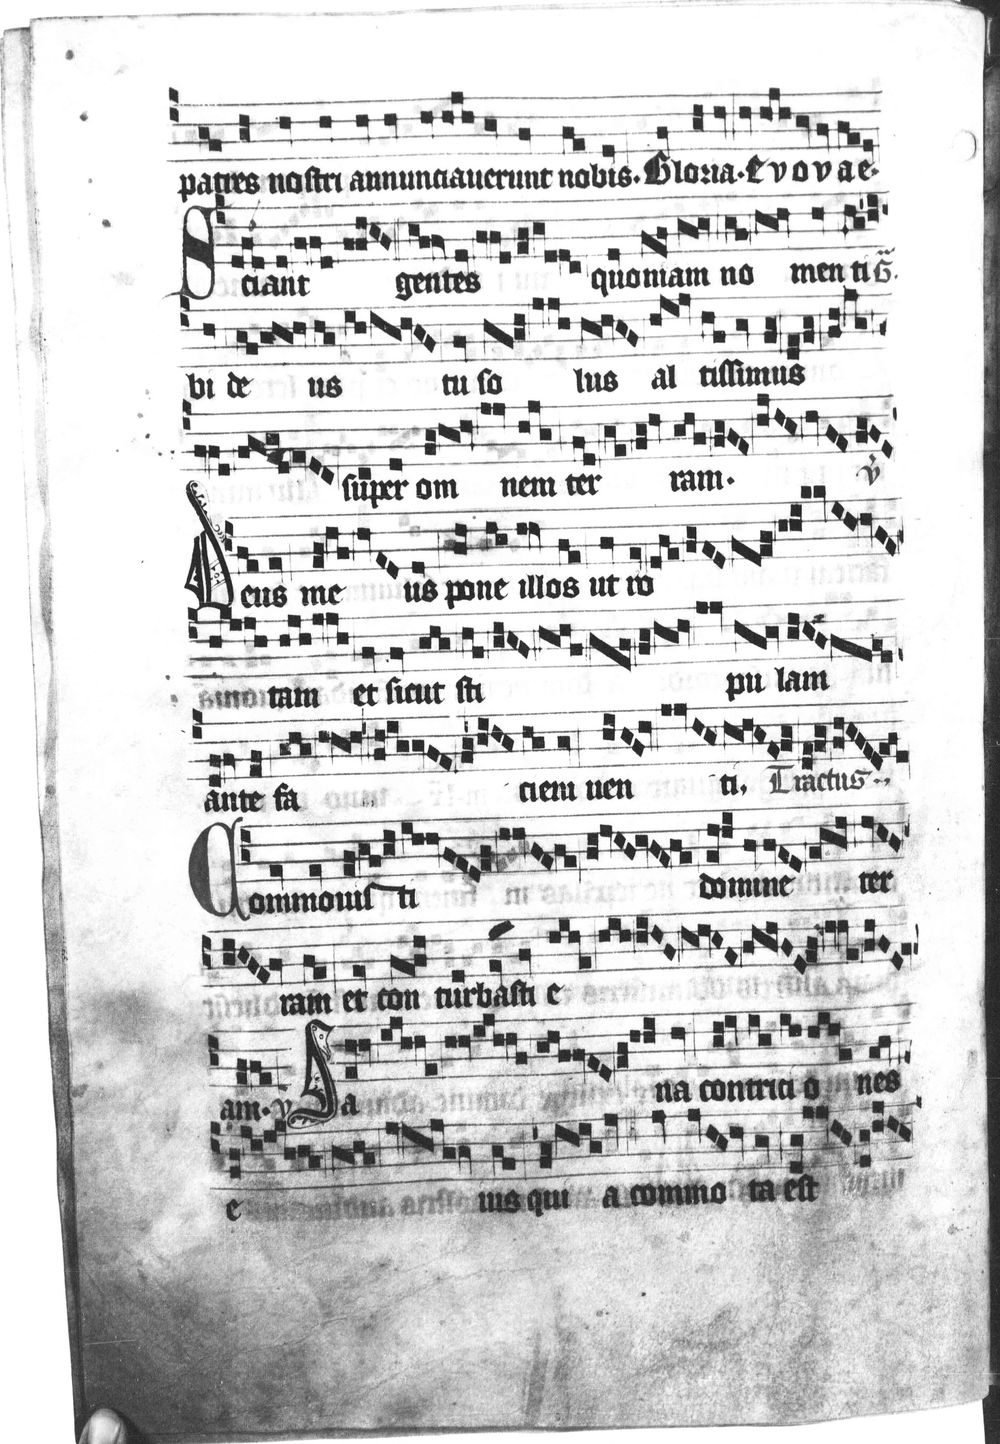 patres nostri annunciauerunt nobis. Gloria. Evovae.
Sciant gentes quoniam no men ti G.
bi de us tu so lus al tissimus
super om nem ter ram. V
Deus me us pone illos ut ro
tam et sicut sti pu lam
ante fa ciem uen ti. Tractus
Commouis ti domine ter
ram et con turbasti e
am. V Sa na contrici o nes
e ius qui a commo ta est